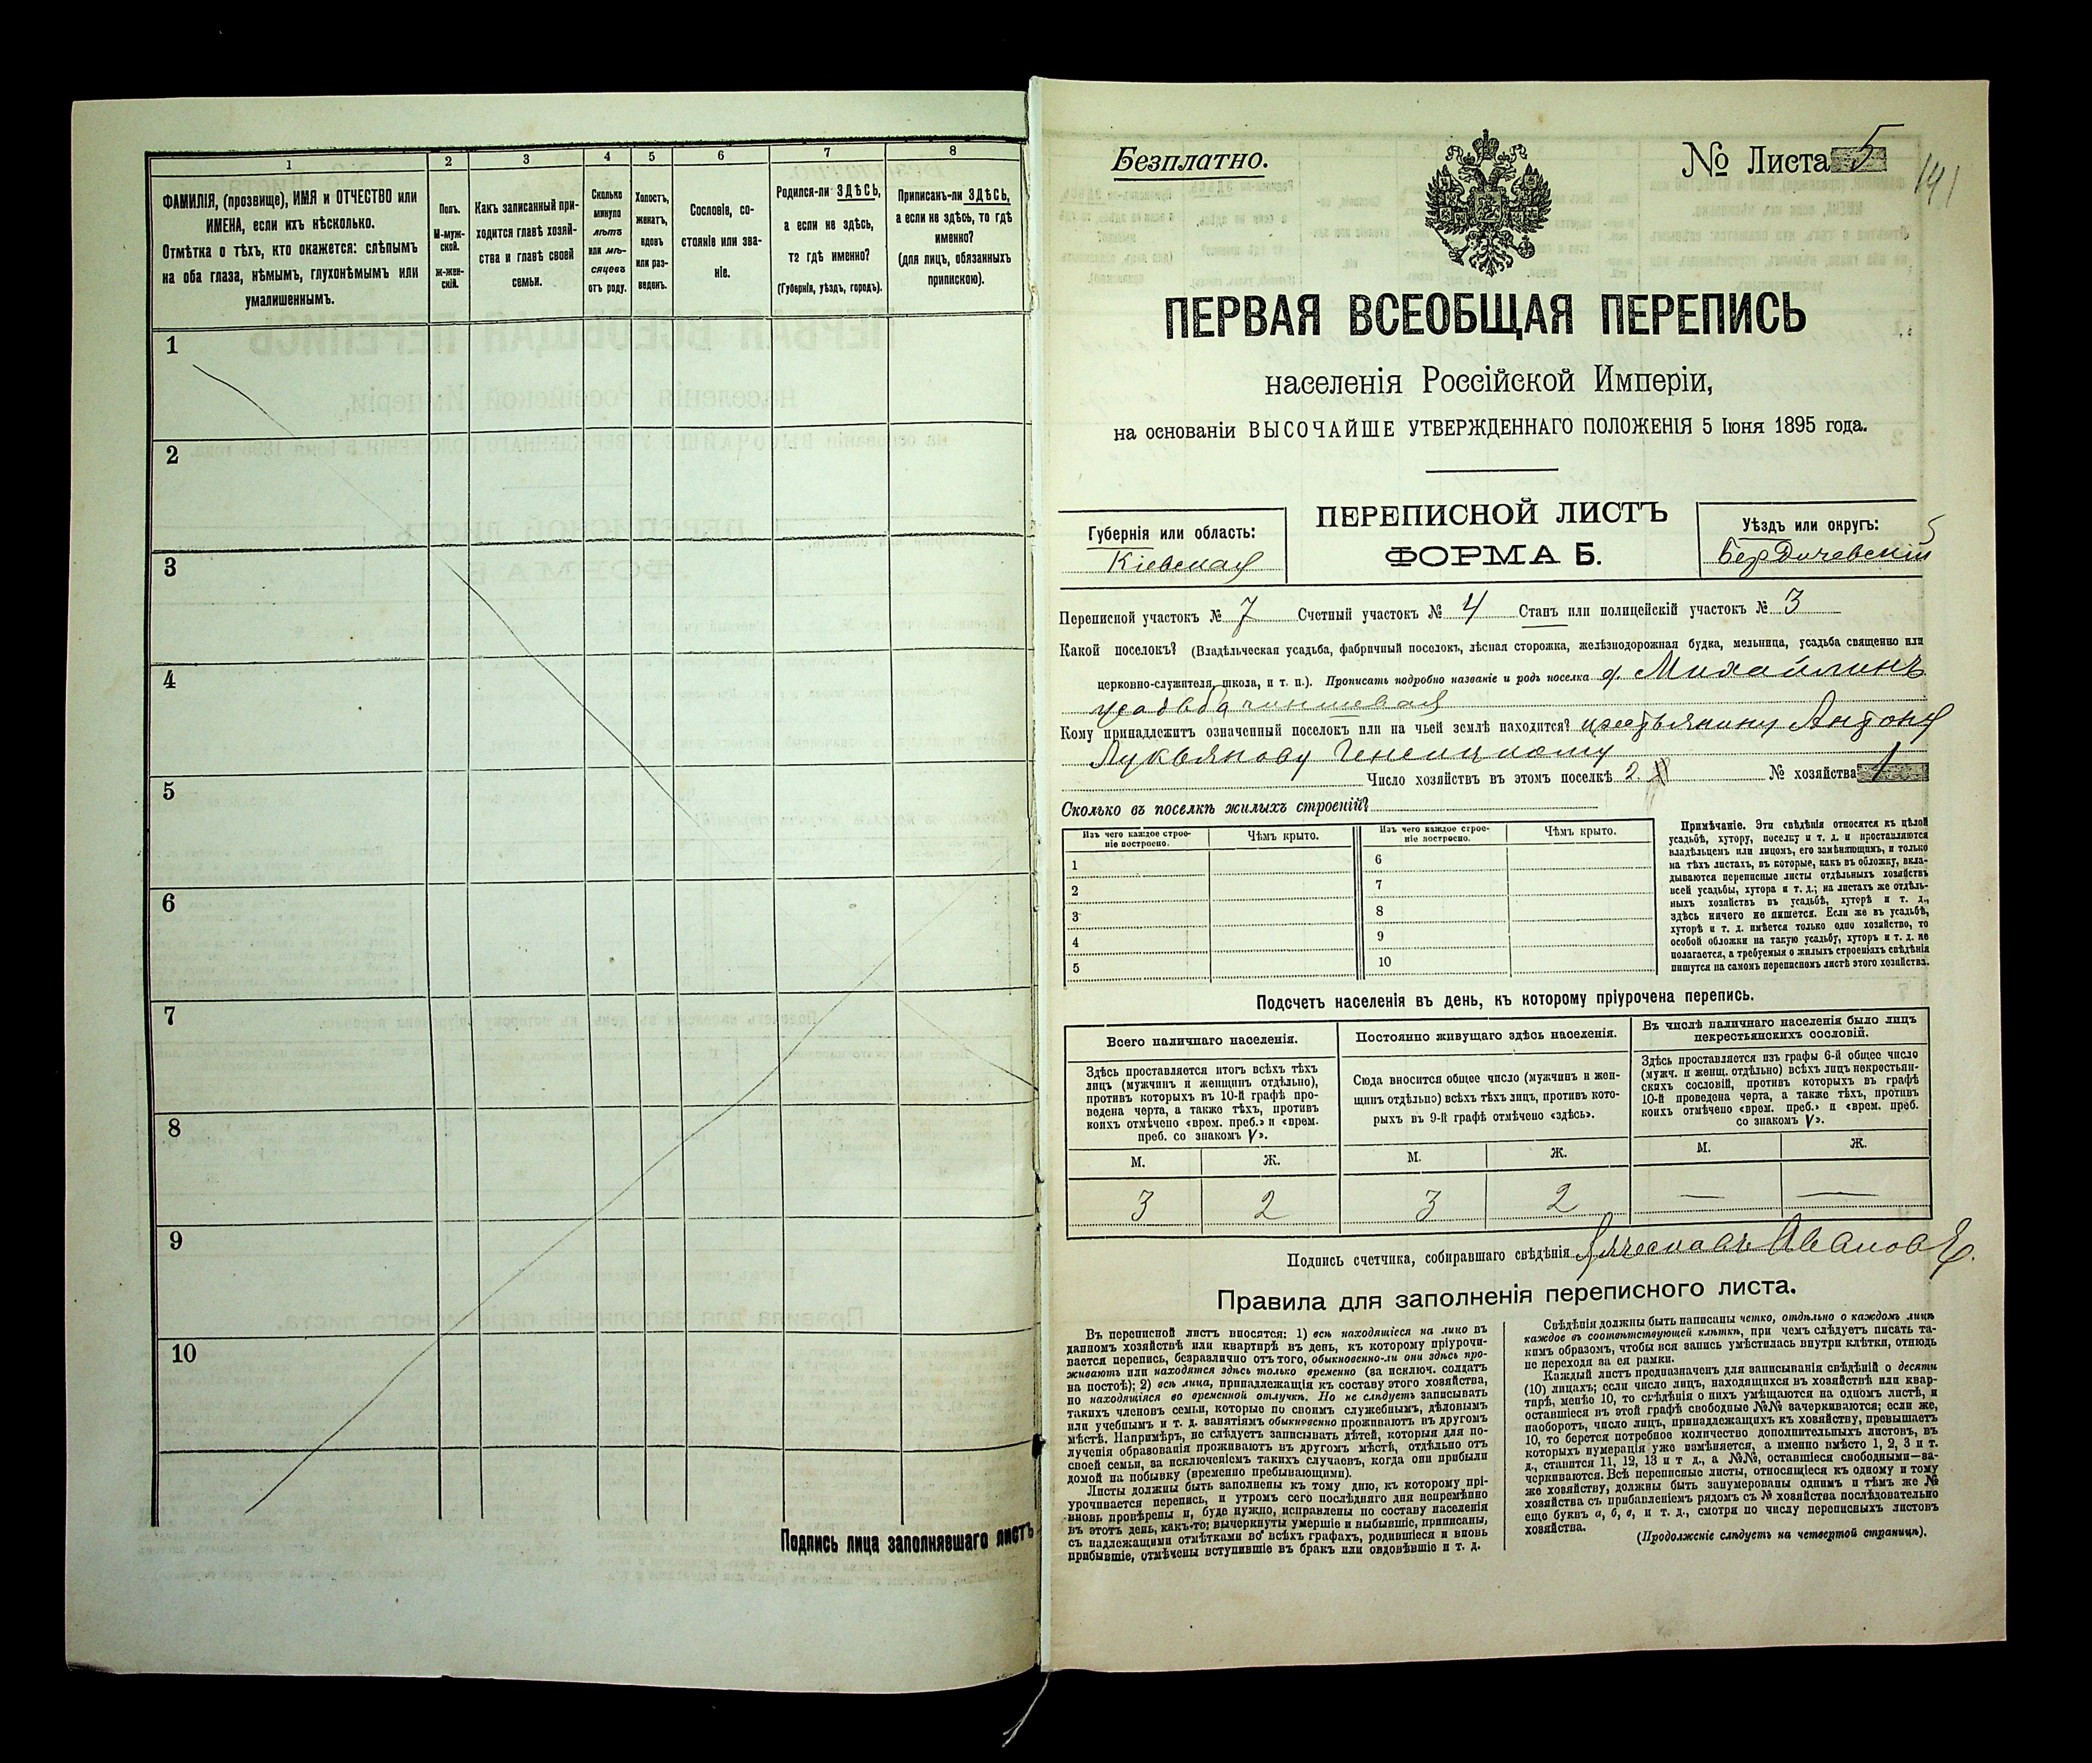 1
2
3
4
5
6
7
8
ФАМИЛІЯ, (прозвище), ИМЯ и ОТЧЕСТВО или
ИМЕНА, если ихъ нѣсколько.
Отмѣтка о тѣхъ, кто окажется: слѣпымъ
на оба глаза, нѣмымъ, глухонѣмымъ или
умалишеннымъ.
Полъ.
М-муж-
ской.
ж-жен-
скій.
Какъ записанный при-
ходится главѣ хозяй-
ства и главѣ своей
семьи.
Сколько
минуло
лѣтъ
или мѣ-
сяцевъ
отъ роду.
Холостъ,
женатъ,
вдовъ
или раз-
веденъ.
Сословіе, со-
стояніе или зва-
ніе.
Родился-ли ЗДѢСЬ,
а если не здѣсь,
то гдѣ именно?
(Губернія, уѣздъ, городъ).
Приписанъ-ли ЗДѢСЬ,
а если не здѣсь, то гдѣ
именно?
(для лицъ, обязанныхъ
припискою).
1
2
3
4
5
6
7
8
9
10
Подпись лица заполнявшаго листъ
Безплатно.
№ Листа 5
141
ПЕРВАЯ ВСЕОБЩАЯ ПЕРЕПИСЬ
населенія Россійской Имперіи,
на основаніи ВЫСОЧАЙШЕ УТВЕРЖДЕННАГО ПОЛОЖЕНІЯ 5 Іюня 1895 года.
Губернія или область:
Кіевская
ПЕРЕПИСНОЙ ЛИСТЪ
ФОРМА Б.
Уѣздъ или округъ:
5
Бердичевскій
Переписной участокъ № 7 Счетный участокъ № 4 Станъ или полицейскій участокъ № 3
Какой поселокъ? (Владѣльческая усадьба, фабричный поселокъ, лѣсная сторожка, желѣзнодорожная будка, мельница, усадьба священно или
церковно-служителя, школа, и т. п.). Прописать подробно названіе и родъ поселка д. Михайлинъ
усадьба чиншевая
Кому принадлежитъ означенный поселокъ или на чьей землѣ находится? крестьянину Антону
Лукьянову
Число хозяйствъ въ этомъ поселкѣ 2 № хозяйства 1
Сколько въ поселкѣ жилыхъ строеній?
Изъ чего каждое строе-
ніе построено.
Чѣмъ крыто.
Изъ чего каждое строе-
ніе построено.
Чѣмъ крыто.
1
2
3
4
5
6
7
8
9
10
Примѣчаніе. Эти свѣдѣнія относятся къ цѣлой
усадьбѣ, хутору, поселку и т. д. и проставляются
владѣльцемъ или лицомъ, его замѣняющимъ, и только
на тѣхъ листахъ, въ которые, какъ въ обложку, вкла-
дываются переписные листы отдѣльныхъ хозяйствъ
всей усадьбы, хутора и т. д.; на листахъ же отдѣль-
ныхъ хозяйствъ въ усадьбѣ, хуторѣ и т. д.,
здѣсь ничего не пишется. Если же въ усадьбѣ,
хуторѣ и т. д. имѣется только одно хозяйство, то
особой обложки на такую усадьбу, хуторъ и т. д. не
полагается, а требуемыя о жилыхъ строеніяхъ свѣдѣнія
пишутся на самомъ переписномъ листѣ этого хозяйства.
Подсчетъ населенія въ день, къ которому пріурочена перепись.
Всего наличнаго населенія.
Здѣсь проставляется итогъ всѣхъ тѣхъ
лицъ (мужчинъ и женщинъ отдѣльно),
противъ которыхъ въ 10-й графѣ про-
ведена черта, а также тѣхъ, противъ
коихъ отмѣчено «врем. преб.» и «врем.
преб. со знакомъ V».
Постоянно живущаго здѣсь населенія.
Сюда вносится общее число (мужчинъ и жен-
щинъ отдѣльно) всѣхъ тѣхъ лицъ, противъ кото-
рыхъ въ 9-й графѣ отмѣчено «здѣсь».
Въ числѣ наличнаго населенія было лицъ
некрестьянскихъ сословій.
Здѣсь проставляется изъ графы 6-й общее число
(мужч. и женщ. отдѣльно) всѣхъ лицъ некрестьян-
скихъ сословій, противъ которыхъ въ графѣ
10-й проведена черта, а также тѣхъ, противъ
коихъ отмѣчено «врем. преб.» и «врем. преб.
со знакомъ V».
М. Ж. М. Ж. М. Ж.
3 2 3 2 — —
Подпись счетчика, собиравшаго свѣдѣнія
Правила для заполненія переписного листа.
Въ переписной листъ вносятся: 1) всѣ находящіеся на лицо въ
данномъ хозяйствѣ или квартирѣ въ день, къ которому пріурочи-
вается перепись, безразлично отъ того, обыкновенно-ли они здѣсь про-
живаютъ или находятся здѣсь только временно (за исключ. солдатъ
на постоѣ); 2) всѣ лица, принадлежащія къ составу этого хозяйства,
но находящіяся во временной отлучкѣ. Но не слѣдуетъ записывать
такихъ членовъ семьи, которые по своимъ служебнымъ, дѣловымъ
или учебнымъ и т. д. занятіямъ обыкновенно проживаютъ въ другомъ
мѣстѣ. Напримѣръ, не слѣдуетъ записывать дѣтей, которыя для по-
лученія образованія проживаютъ въ другомъ мѣстѣ, отдѣльно отъ
своей семьи, за исключеніемъ такихъ случаевъ, когда они прибыли
домой на побывку (временно пребывающими).
Листы должны быть заполнены къ тому дню, къ которому прі-
урочивается перепись, и утромъ сего послѣдняго дня непремѣнно
вновь провѣрены и, буде нужно, исправлены по составу населенія
въ этотъ день, какъ-то; вычеркнуты умершіе и выбывшіе, приписаны,
съ надлежащими отмѣтками во всѣхъ графахъ, родившіеся и вновь
прибывшіе, отмѣчены вступившіе въ бракъ или овдовѣвшіе и т. д.
Свѣдѣнія должны быть написаны четко, отдѣльно о каждомъ лицѣ
каждое въ соотвѣтствующей клѣткѣ, при чемъ слѣдуетъ писать та-
кимъ образомъ, чтобы вся запись умѣстилась внутри клѣтки, отнюдь
не переходя за ея рамки.
Каждый листъ предназначенъ для записыванія свѣдѣній о десяти
(10) лицахъ; если число лицъ, находящихся въ хозяйствѣ или квар-
тирѣ, менѣе 10, то свѣдѣнія о нихъ умѣщаются на одномъ листѣ, и
оставшіеся въ этой графѣ свободные №№ зачеркиваются; если же,
наоборотъ, число лицъ, принадлежащихъ къ хозяйству, превышаетъ
10, то берется потребное количество дополнительныхъ листовъ, въ
которыхъ нумерація уже измѣняется, а именно вмѣсто 1, 2, 3 и т.
д., ставится 11, 12, 13 и т д., а №№, оставшіеся свободными—за-
черкиваются. Всѣ переписные листы, относящіеся къ одному и тому
же хозяйству, должны быть занумерованы однимъ и тѣмъ же №
хозяйства съ прибавленіемъ рядомъ съ № хозяйства послѣдовательно
еще буквъ а, б, в, и т. д., смотря по числу переписныхъ листовъ
хозяйства.
(Продолженіе слѣдуетъ на четвертой страницѣ).